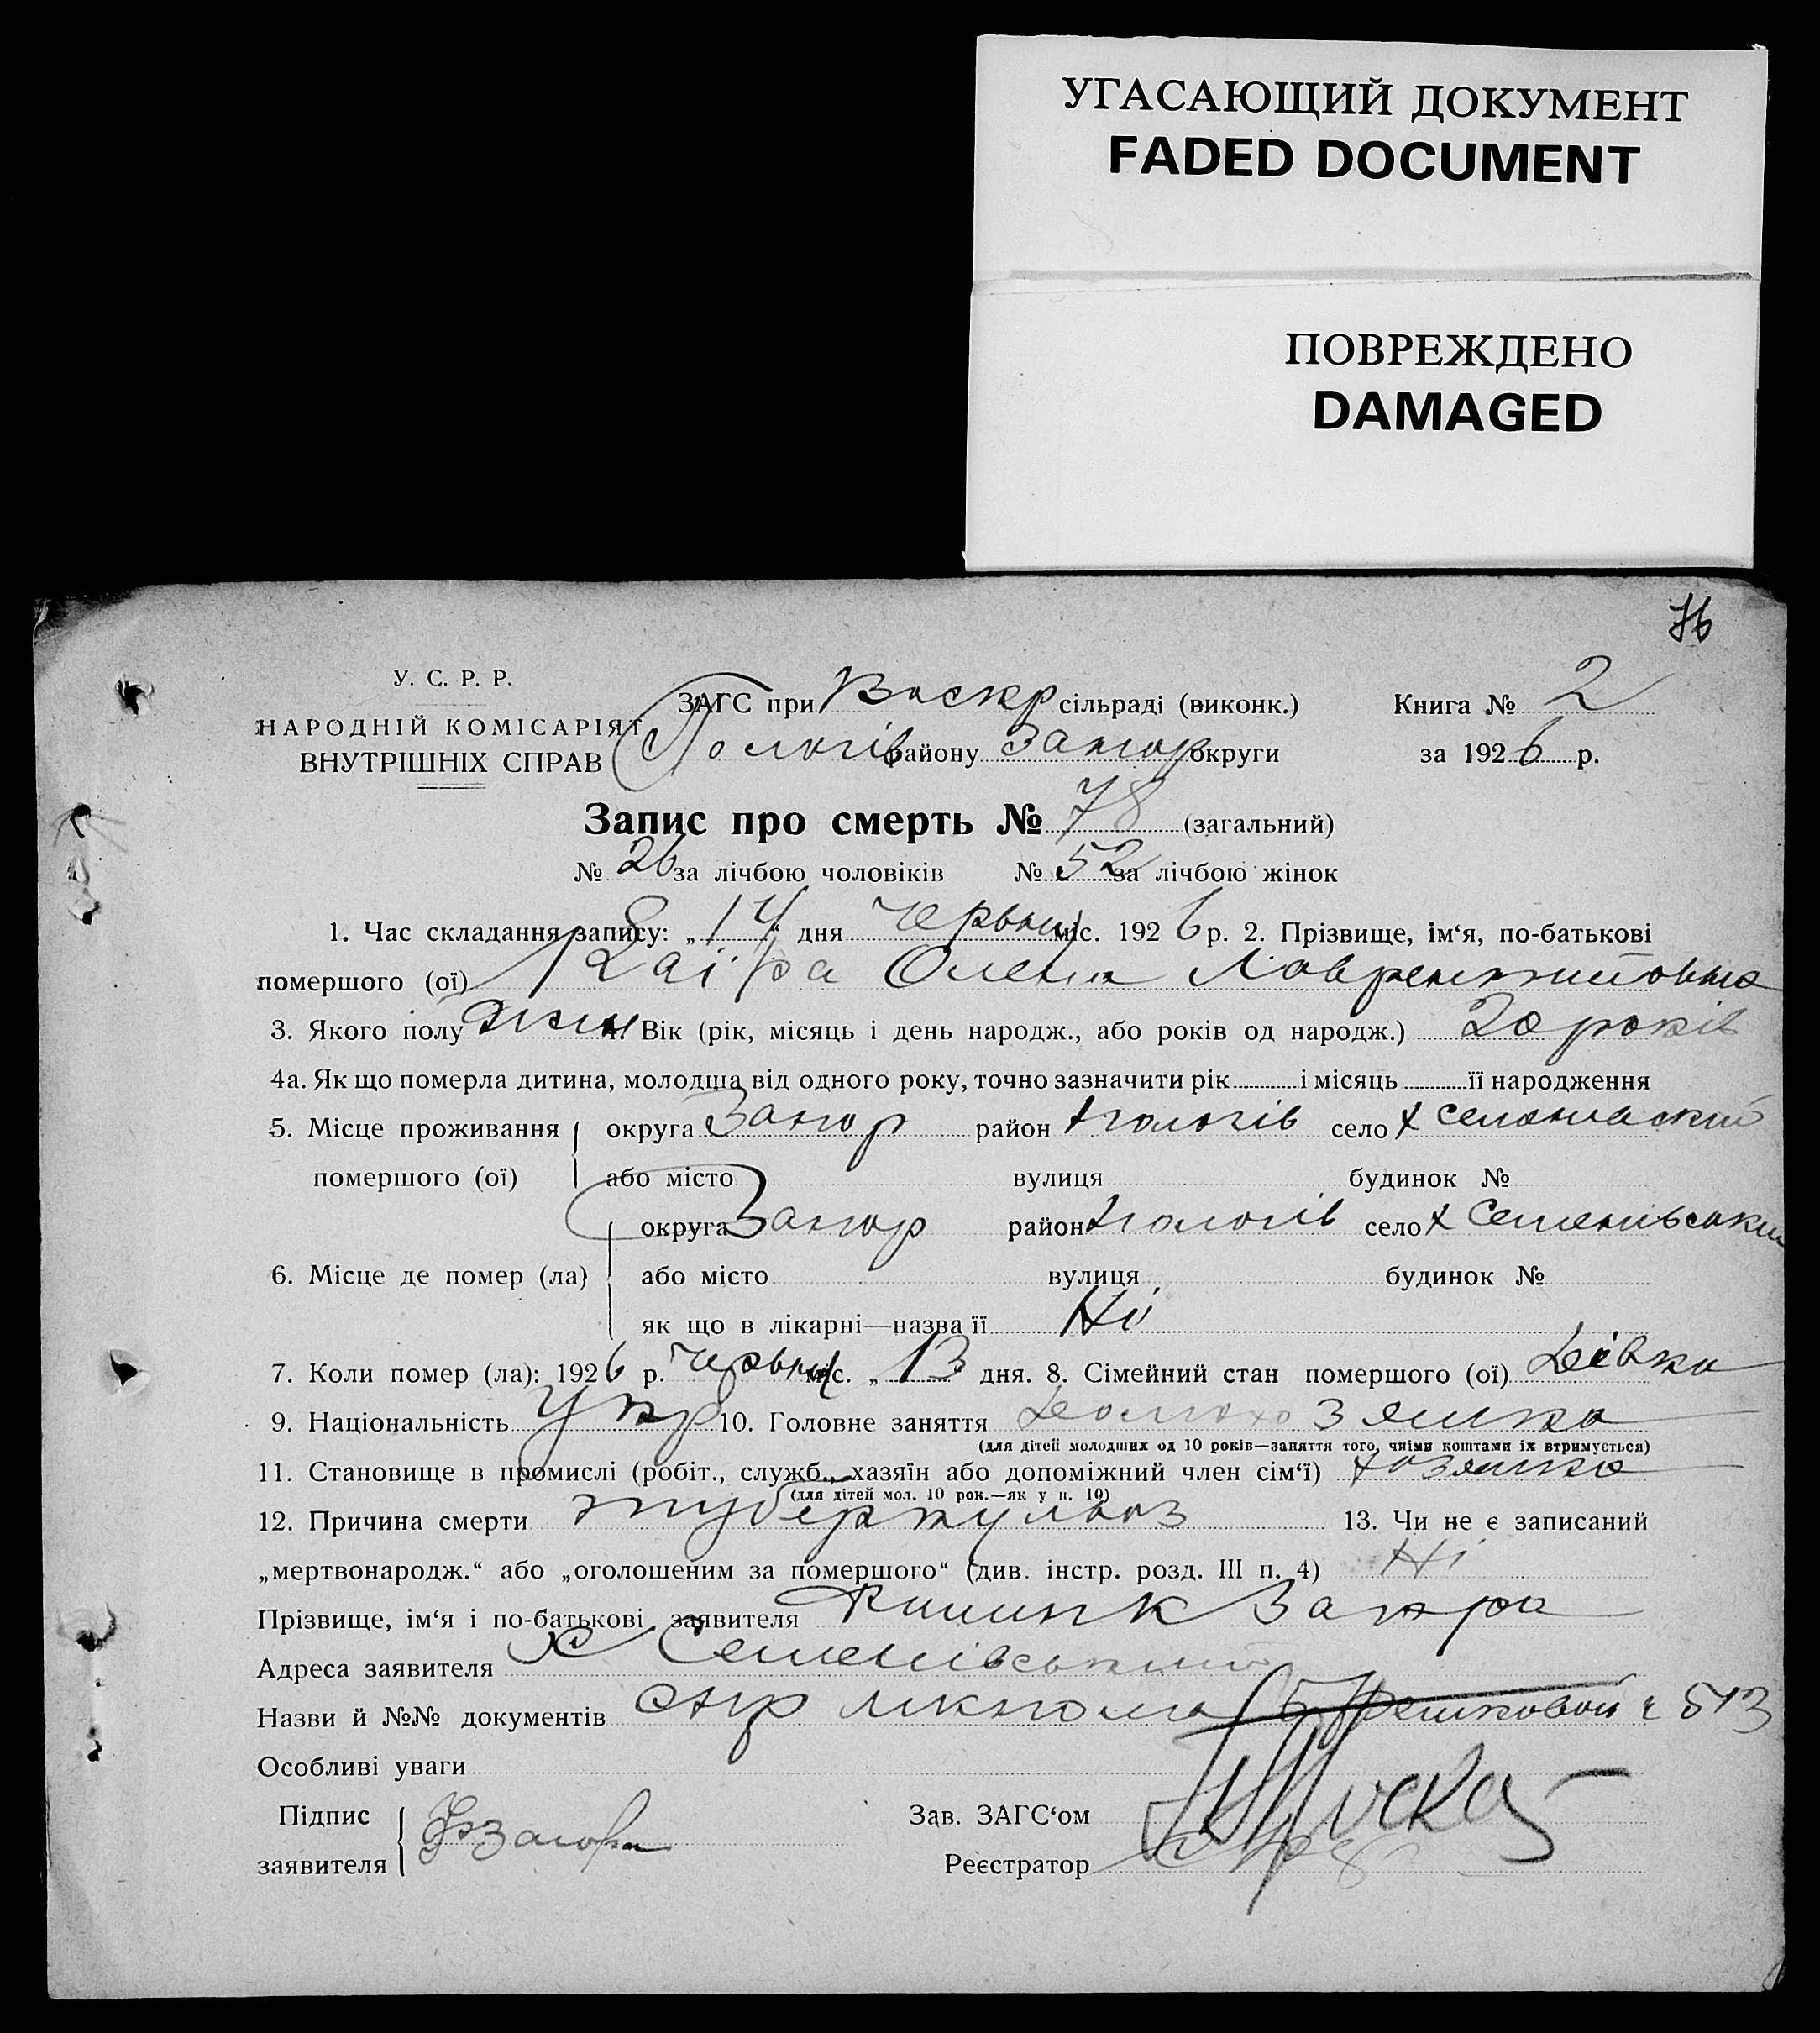 УГАСАЮЩИЙ ДОКУМЕНТ
FADED DOCUMENT
ПОВРЕЖДЕНО
DAMAGED
76
У. С. Р. Р.
НАРОДНІЙ КОМІСАРІЯТ
ВНУТРІШНІХ СПРАВ
ЗАГС при Воскр сільраді (виконк.) Книга № 2
Пологів району Запор округи за 1926 р.
Запис про смерть № 78 (загальний)
№ 26 за лічбою чоловіків № 52 за лічбою жінок
1. Час складання запису: „14“ дня червня міс. 1926 р. 2. Прізвище, ім‘я, по-батькові
помершого (ої) Олена Лаврентиївна
3. Якого полу жин 4. Вік (рік, місяць і день народж., або років од народж.) 20 років
4а. Як що померла дитина, молодша від одного року, точно зазначити рік і місяць її народження
5. Місце проживання округа Запор район Пологів село х Семенівський
помершого (ої) або місто вулиця будинок №
округа Запор район Пологів село х Семенівський
6. Місце де помер (ла) або місто вулиця будинок №
як що в лікарні—назва її Ні
7. Коли помер (ла): 1926 р. червня міс. „13 дня. 8. Сімейний стан помершого (ої) Дівка
9. Національність Укр 10. Головне заняття Домохозяика
(для дітей молодших од 10 років—заняття того, чиїми коштами їх втримується)
11. Становище в промислі (робіт., служб., хазяїн або допоміжний член сім‘ї) хозяика
(для дітей мол. 10 рок.—як у п. 10)
12. Причина смерти туберкульоз 13. Чи не є записаний
„мертвонародж.“ або „оголошеним за помершого“ (див. інстр. розд. III п. 4) Ні
Прізвище, ім‘я і по-батькові заявителя
Адреса заявителя х Семенівський
Назви й №№ документів ч 513
Особливі уваги
Підпис Зав. ЗАГС‘ом
заявителя Реєстратор